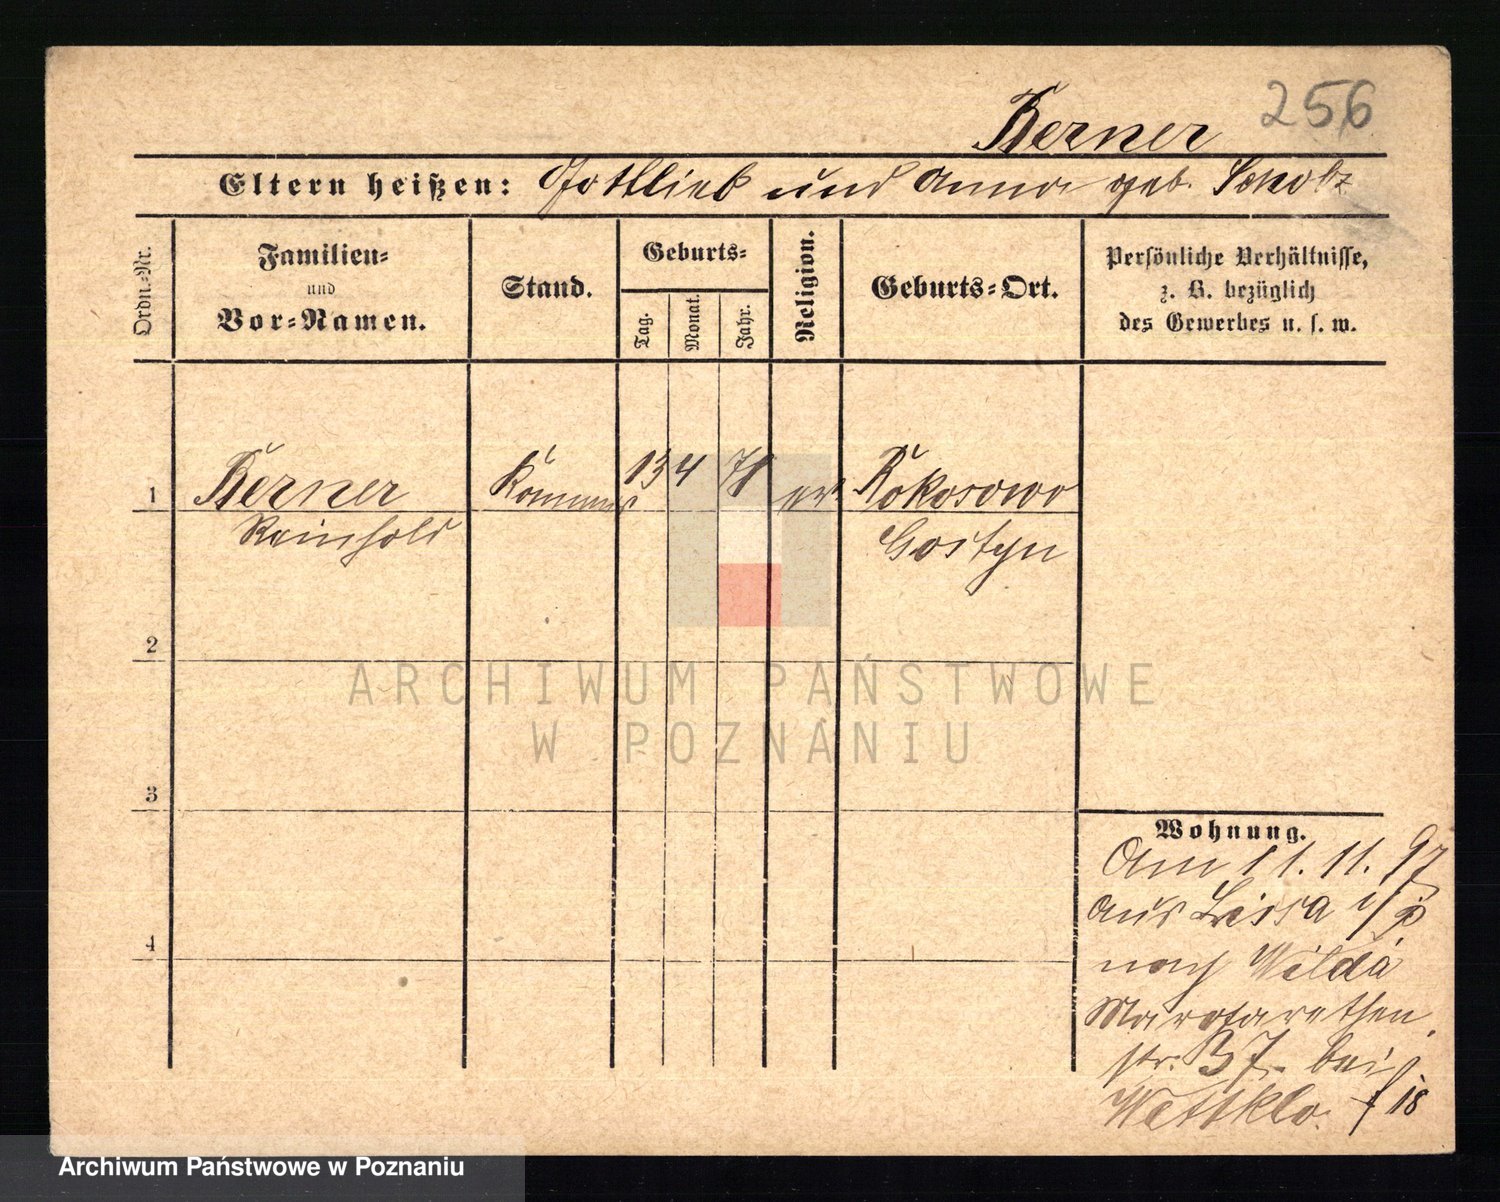 256
Berner
Eltern heißen: Gottlieb und Anna geb. Scholz
Ordn.-Nr.
Familien-
und
Vor-Namen.
Stand.
Geburts-
Tag.
Monat.
Jahr.
Religion.
Geburts-Ort.
Persönliche Verhältnisse,
z. B. bezüglich
des Gewerbes u. s. w.
1 Berner 13 4 78 ev Rokosowo
Reinhold Gostyn
2
3
4
ARCHIWUM PAŃSTWOWE
W POZNANIU
Wohnung.
Am 11. 11. 97
aus Lissa i/p
nach Wilda
Margarethen
str. 37. bei
18
Archiwum Państwowe w Poznaniu